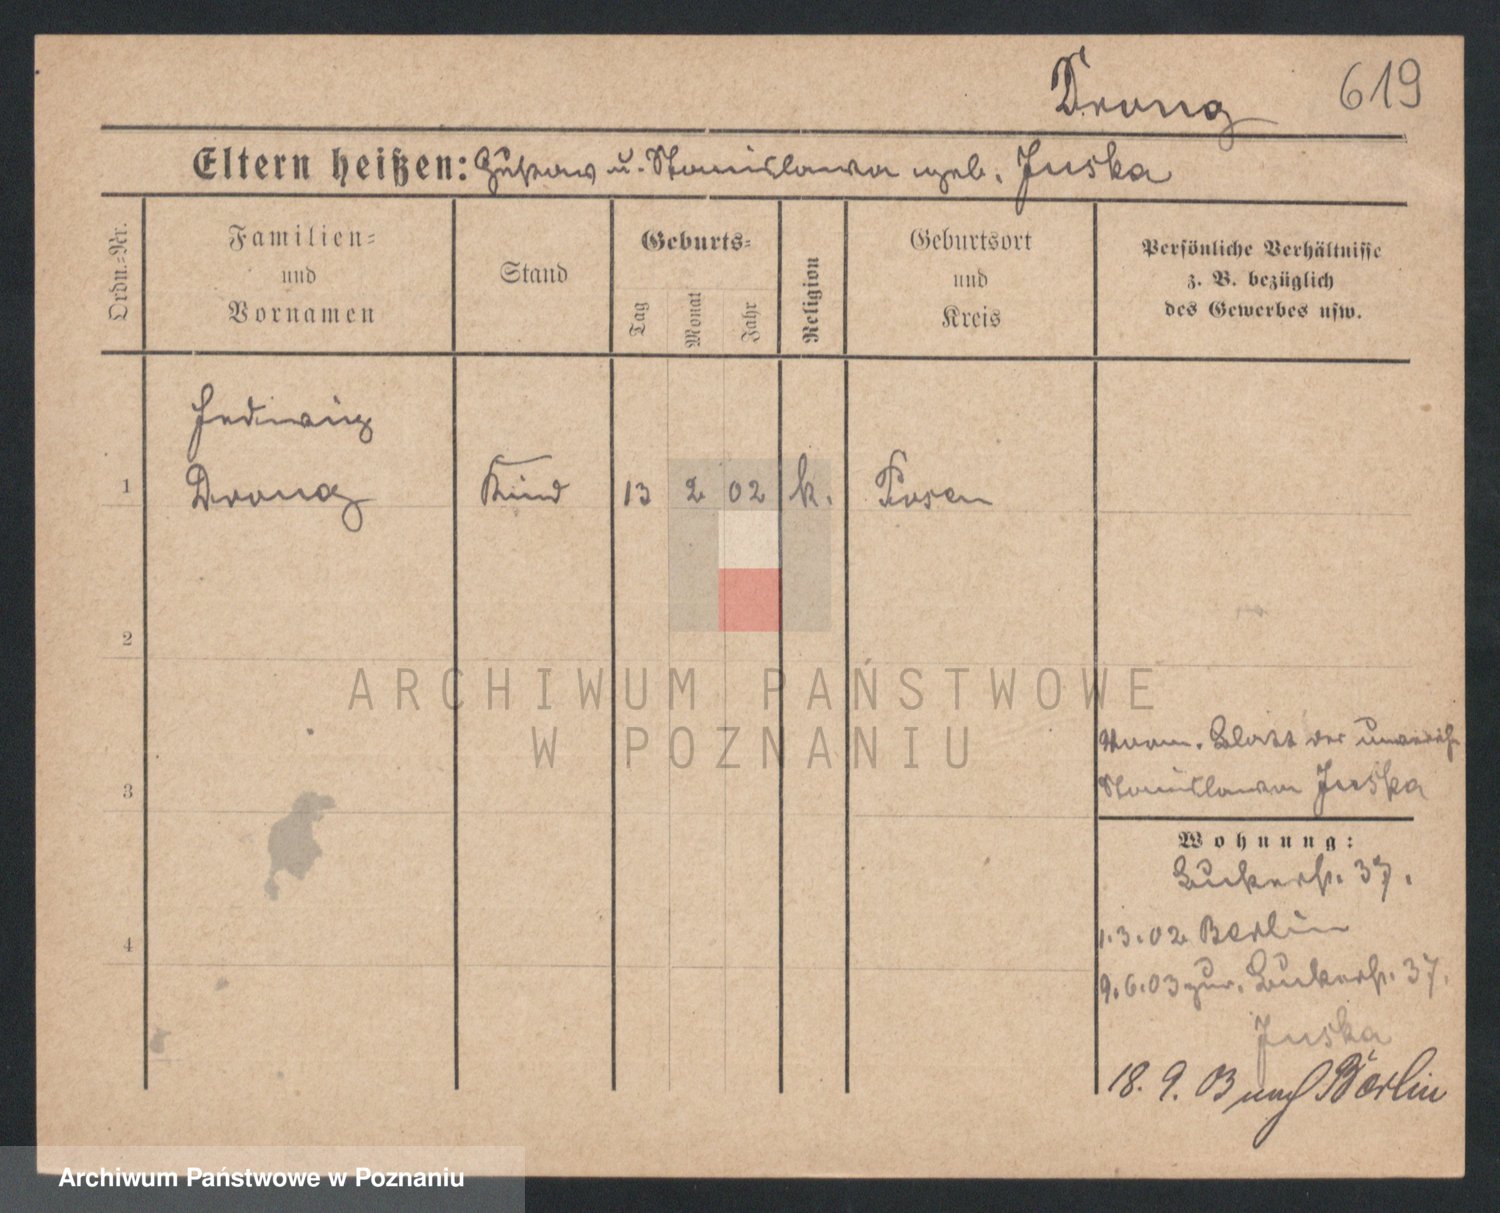 Drong 619
Eltern heißen: Gustav u. Stanislawa geb. Juska
Ordn.-Nr.
Familien-
und
Vornamen
Stand
Geburts-
Tag
Monat
Jahr
Religion
Geburtsort
und
Kreis
Persönliche Verhältnisse
z. B. bezüglich
des Gewerbes usw.
Hedwig
1 Drong Kind 13 2 02 k. Posen
2
ARCHIWUM PAŃSTWOWE
W POZNANIU
Blatt der
3 Stanislawa Juska
Wohnung:
37.
4 1.3.02 Berlin
9.6.03 zur. 37.
Juska
18. 9. 03 nach Berlin
Archiwum Państwowe w Poznaniu